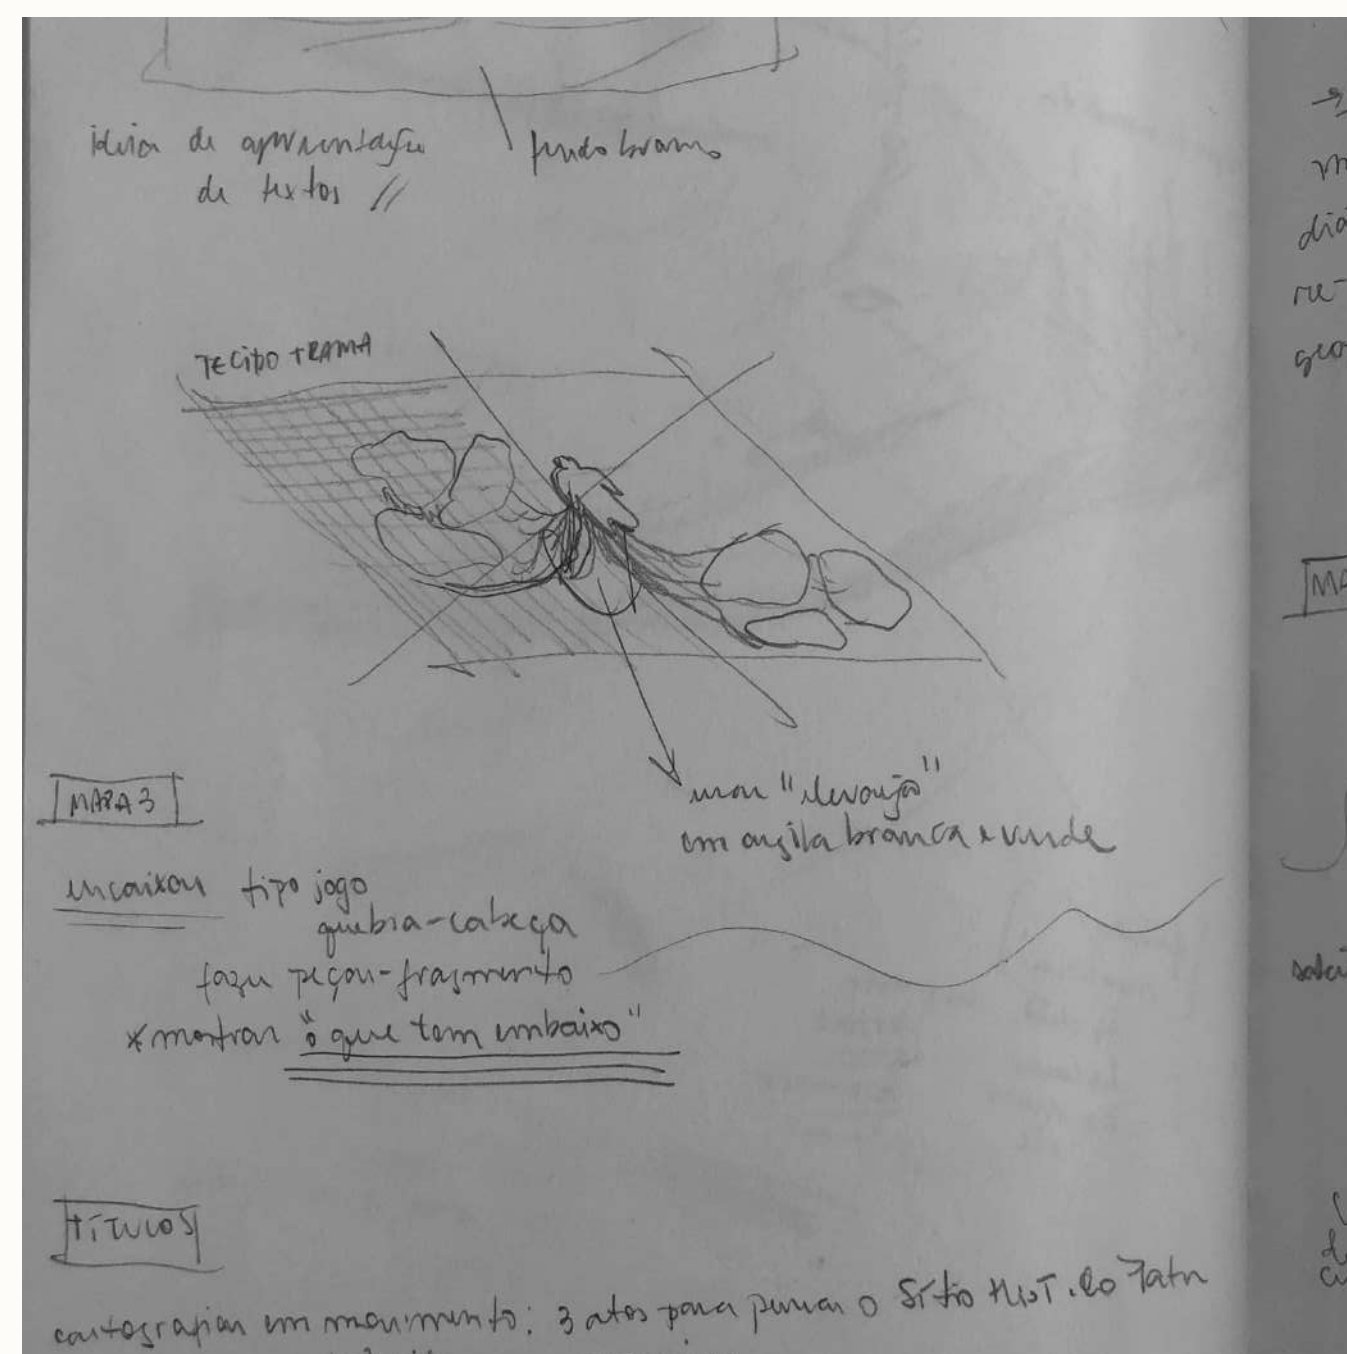 ideia de apresentação
de textos //
fundo branco
TECIDO TRAMA
"elevação"
em argila branca e verde
MAPA 3
encaixar tipo jogo
quebra-cabeça
fazer peças-fragmento
*mostrar "o que tem embaixo"
TÍTULOS
cartografias em movimento: 3 atos para pensar o Sítio HIST. do
→
MA